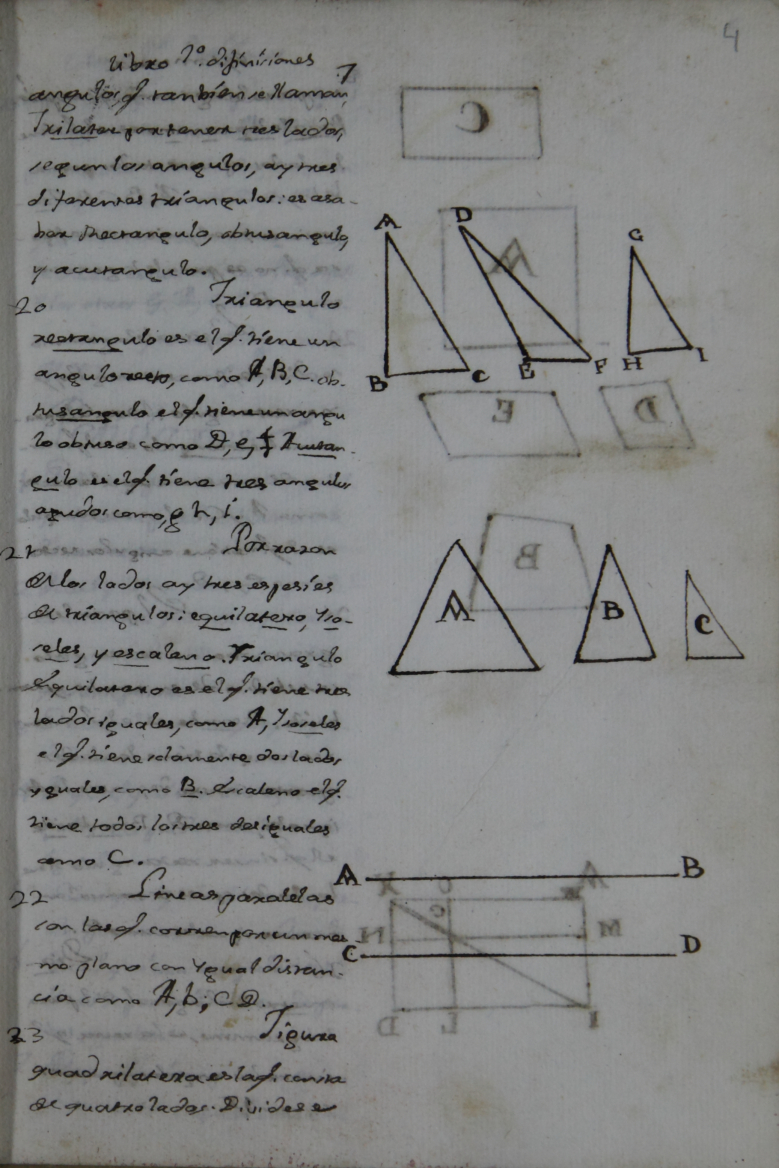 4
Libro 1º. difiniciones 7
angulos q. tambien se llaman
Trilater por tener tres lados,
segun los angulos, ay tres
diferentes triangulos: es asa-
ber Rectangulo, obtusangulo,
y acutangulo.
20 Triangulo
rectangulo es el q. tiene un
angulo recto, como A, B, C. ob-
tusangulo el q. tiene un angu
lo obtuso como D, e, f Acutan-
gulo es el q. tiene tres angulos
agudos como, g h, i.
21 Por razon
de los lados ay tres espesies
de triangulos: equilatero, Yso-
seles, y escaleno. Triangulo
Equilatero es el q. tiene tres
lados iguales, como A, Ysoseles
el q. tiene solamente dos lados
yguales, como B. Escaleno el q.
tiene todos los tres desiguales
como C.
22 Lineas paralelas
son las q. corren por un mes
mo plano con ygual distan-
cia como A, b; C D.
23 Figura
quadrilatera es la q. consta
de quatro lados. Divides e
C
A
D
G
A
B
C
E
F
H
I
E
D
B
A
B
C
A
B
C
D
A
N
M
D
L
I